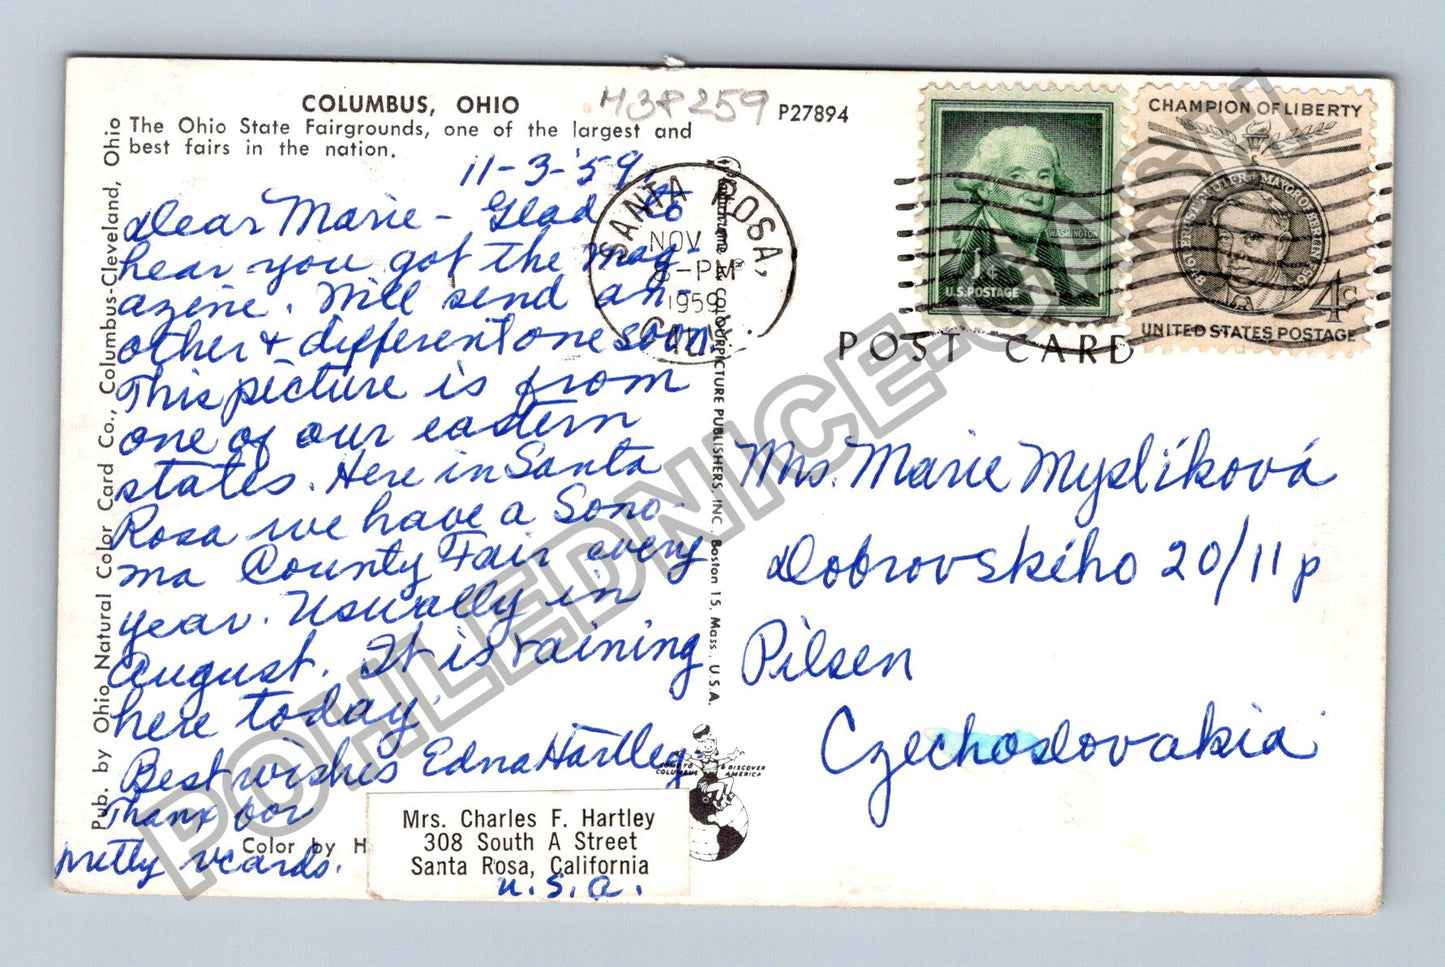 COLUMBUS, OHIO
The Ohio State Fairgrounds, one of the largest and
best fairs in the nation.
H38259
P27894
11-3-'59.
Dear Marie - Glad to
hear you got the mag-
azine. Will send an-
other & different one soon.
This picture is from
one of our eastern
states. Here in Santa
Rosa we have a Sono-
ma County Fair every
year. Usually in
August. It is raining
here today.
Best wishes Edna Hartley
Thanx for
pretty vcards.
Color by H
Mrs. Charles F. Hartley
308 South A Street
Santa Rosa, California
U.S.A.
Pub. by Ohio Natural Color Card Co., Columbus-Cleveland, Ohio
COLOURPICTURE PUBLISHERS, INC., Boston 15, Mass., U.S.A.
COME TO COLUMBUS & DISCOVER AMERICA
SANTA ROSA,
NOV
6-PM
1959
CALIF
WASHINGTON
1¢
U.S. POSTAGE
CHAMPION OF LIBERTY
4c
UNITED STATES POSTAGE
POST CARD
Mrs. Marie Myslíková
Dobrovského 20/11 p
Pilsen
Czechoslovakia
POHLEDNICE-CASH